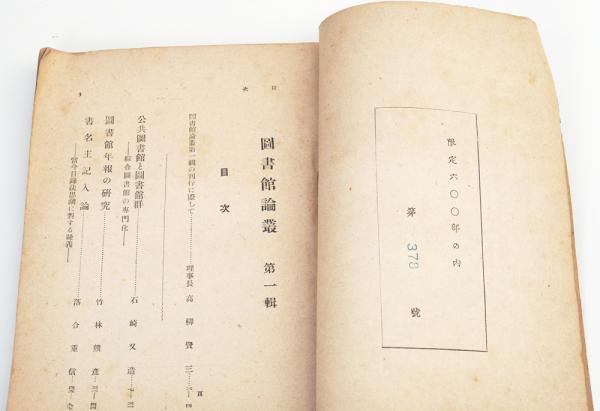 限定六〇〇部の内
第 378 號
目次
圖書館論叢 第一輯
目次
圖書館論叢第一輯の刊行に際して……理事長 高柳賢三
公共圖書館と圖書館群
——綜合圖書館の專門化——……石崎又造
圖書館年報の研究……竹林熊彥
書名主記入論
——當今目錄法思潮に對する疑義——……落合重信